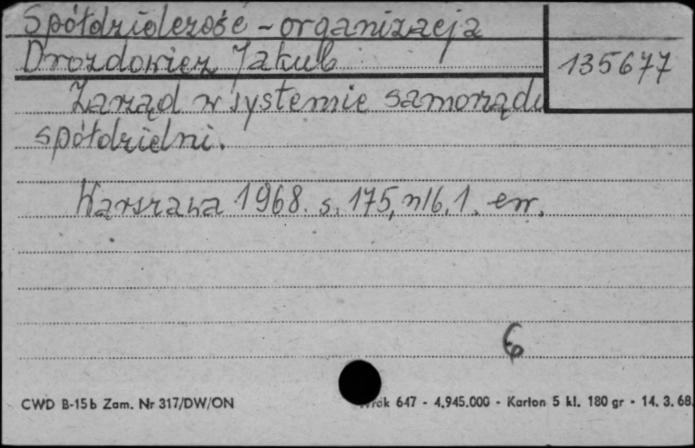 Spółdzielczość - organizacja
Drozdowicz Jakub
135677
Zarząd w systemie samorządu
spółdzielni.
Warszawa 1968. s. 175, nlb. 1. err.
6
CWD B-15b Zam. Nr 317/DW/ON
647 - 4.945.000 - Karton 5 kl. 180 gr - 14. 3. 68.